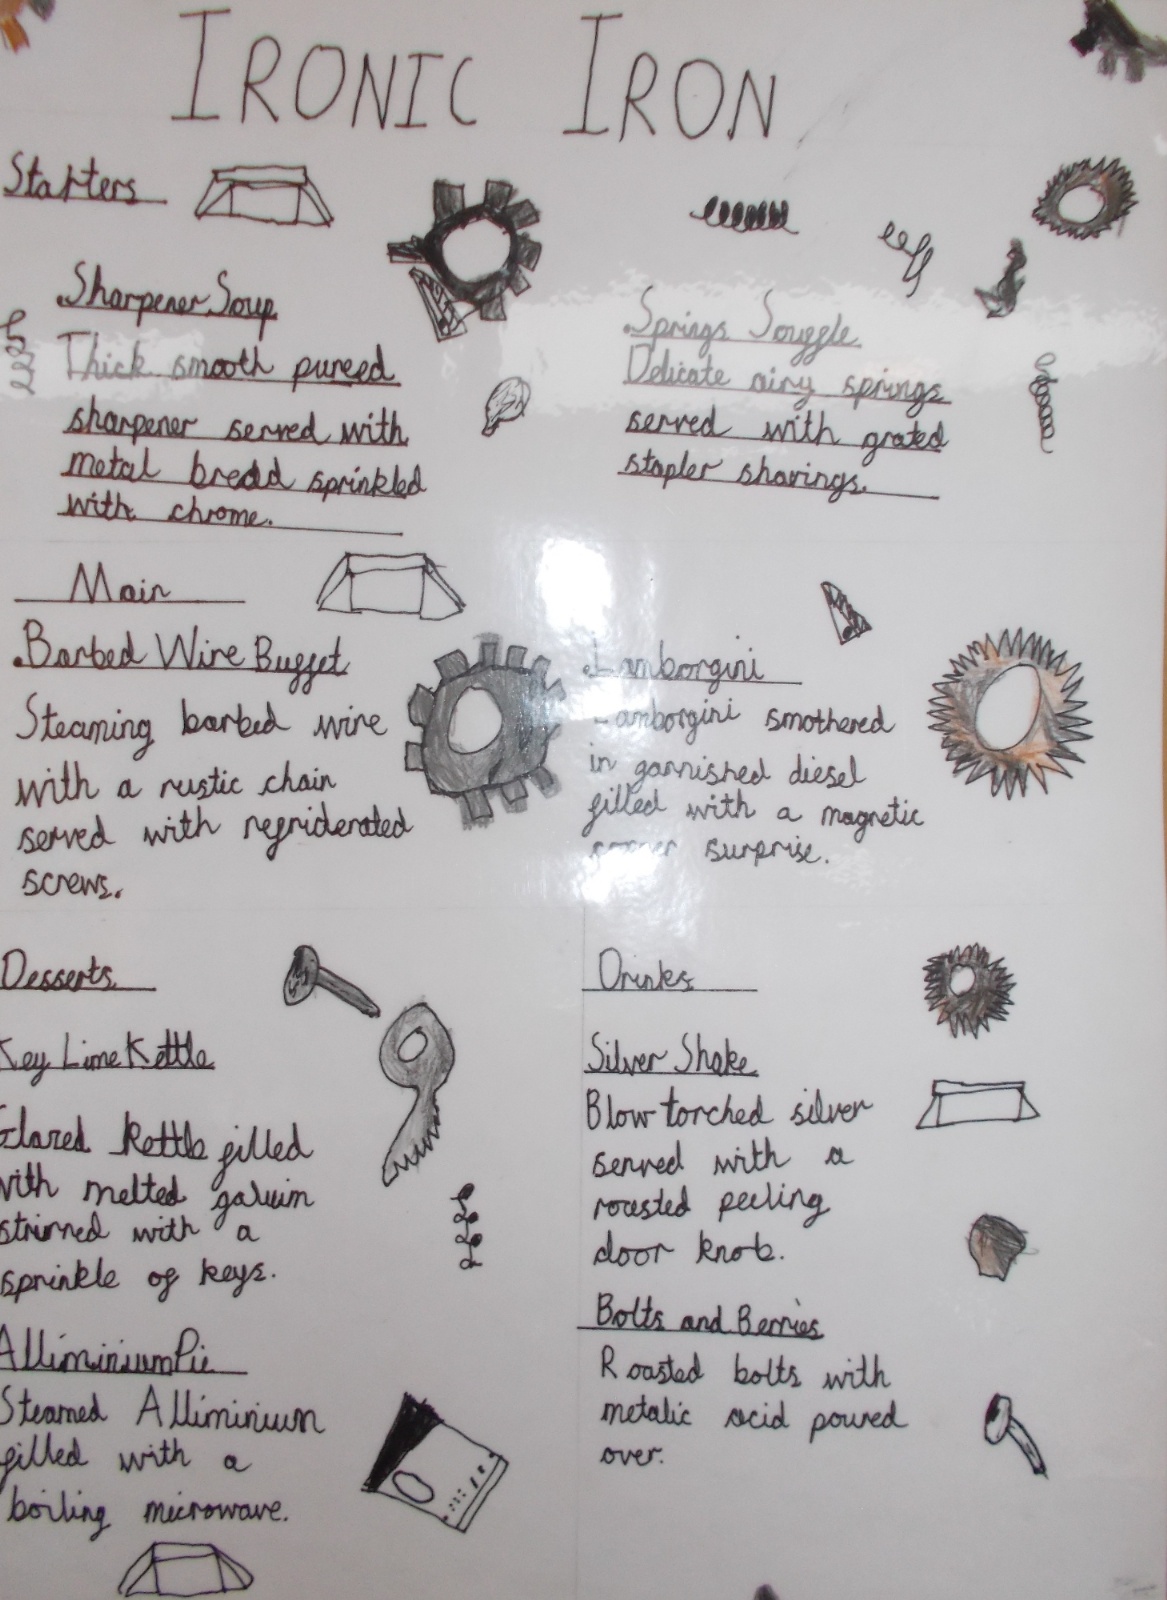 IRONIC IRON
Starters
.Sharpener Soup
Thick smooth pureed
sharpener served with
metal bread sprinkled
with chrome.
.Springs Souggle
Delicate airy springs
served with grated
stapler shavings.
Main
.Barbed Wire Buffet
Steaming barbed wire
with a rustic chain
served with refriderated
screws.
.Lamborgini
Lamborgini smothered
in garnished diesel
filled with a magnetic
surprise.
Desserts
Key Lime Kettle
Glazed kettle filled
with melted
stirred with a
sprinkle of keys.
Alliminium Pie
Steamed Alliminium
filled with a
boiling microwave.
Drinks
Silver Shake
Blow torched silver
served with a
roasted peeling
door knob.
Bolts and Berries
Roasted bolts with
metalic acid poured
over.